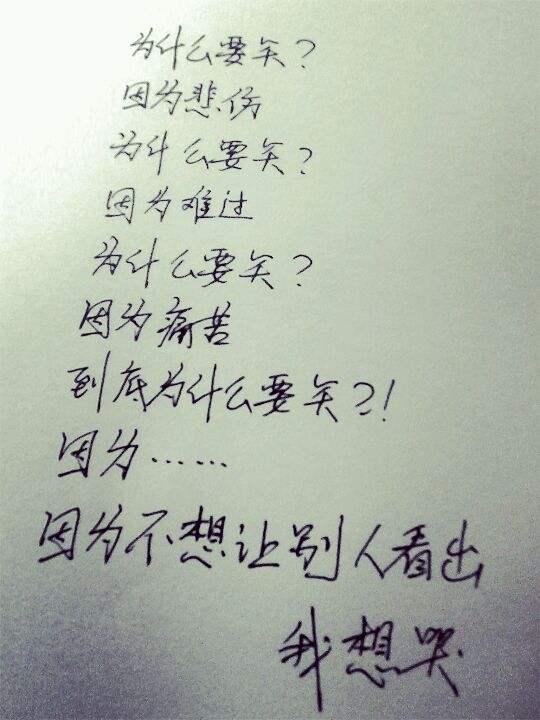 为什么要笑?
因为悲伤
为什么要笑?
因为难过
为什么要笑?
因为痛苦
到底为什么要笑?!
因为……
因为不想让别人看出
我想哭